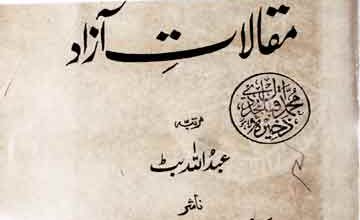 مقالاتِ آزاد
مرتبہ
عبداللہ بٹ
ناشر